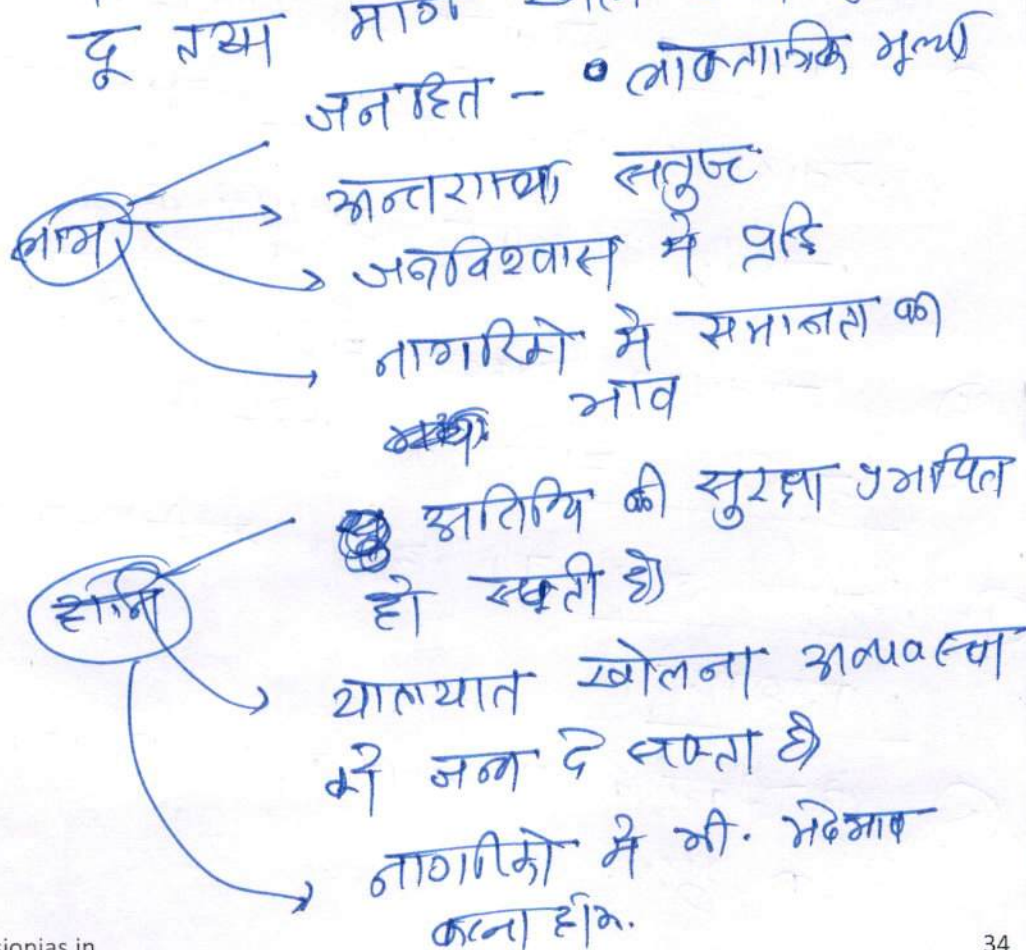 दू तथा मार्ग
जनहित - • लोकतांत्रिक मूल्यों
लाभ
अन्तरात्मा संतुष्ट
जनविश्वास में वृद्धि
नागरिकों में समानता का
भाव
अतिथि की सुरक्षा प्रभावित
हो सकती है
हानि
यातायात खोलना अव्यवस्था
को जन्म दे सकता है
नागरिकों में भी भेदभाव
करना होगा.
sionias.in
34